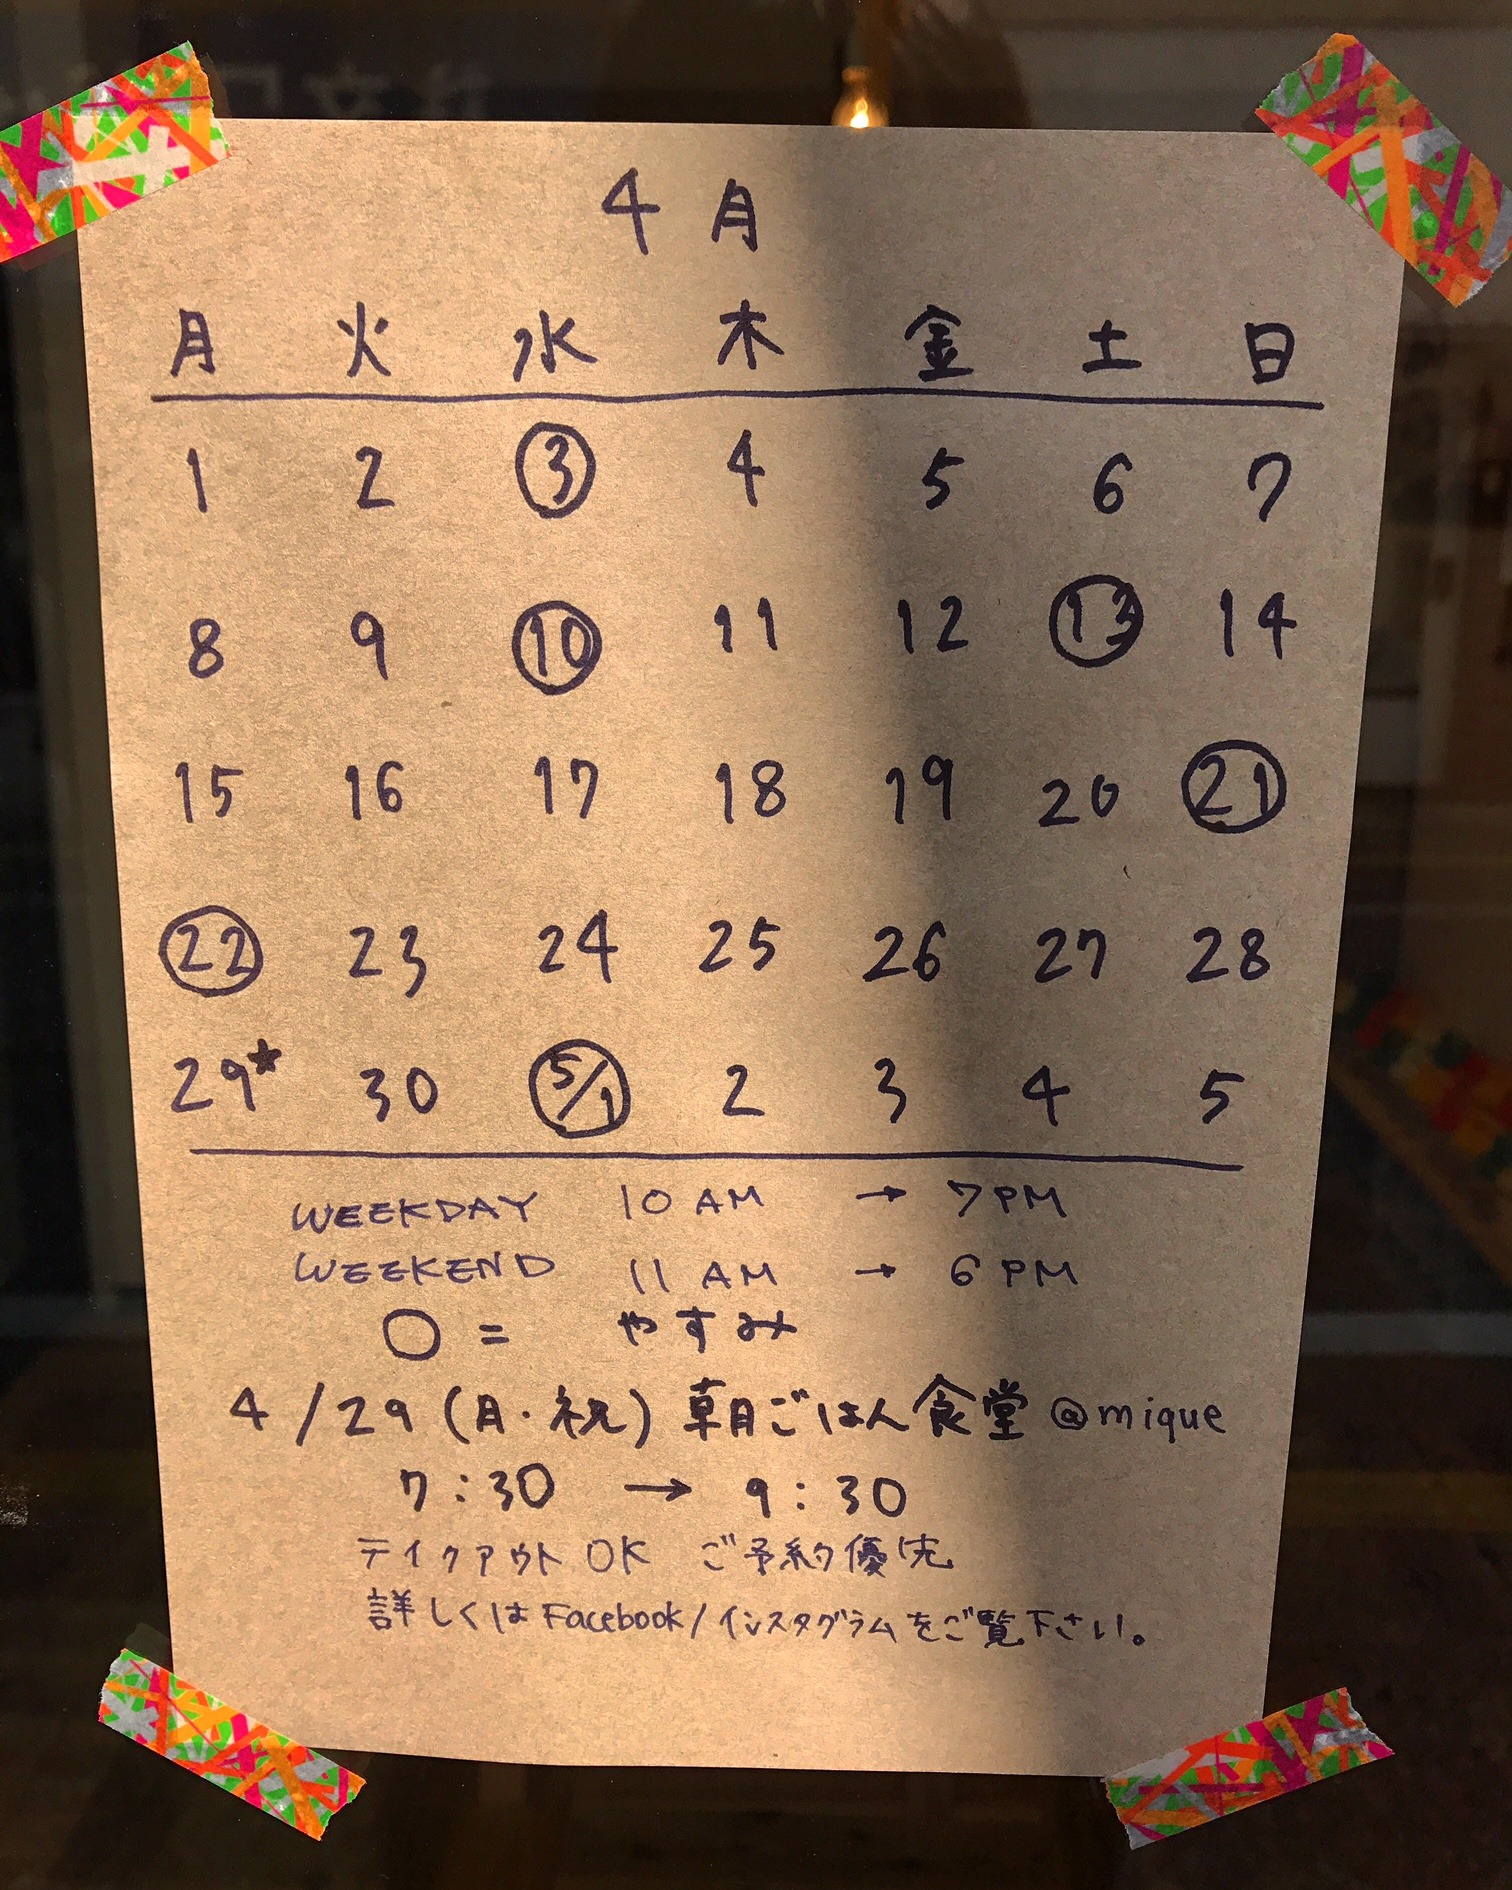 4月
月 火 水 木 金 土 日
1 2 ③ 4 5 6 7
8 9 ⑩ 11 12 ⑬ 14
15 16 17 18 19 20 ㉑
㉒ 23 24 25 26 27 28
29★ 30 5/1 2 3 4 5
WEEKDAY 10 AM → 7 PM
WEEKEND 11 AM → 6 PM
○ = やすみ
4/29 (月・祝) 朝ごはん食堂 @mique
7:30 → 9:30
テイクアウトOK ご予約優先
詳しくは Facebook/インスタグラムをご覧下さい。